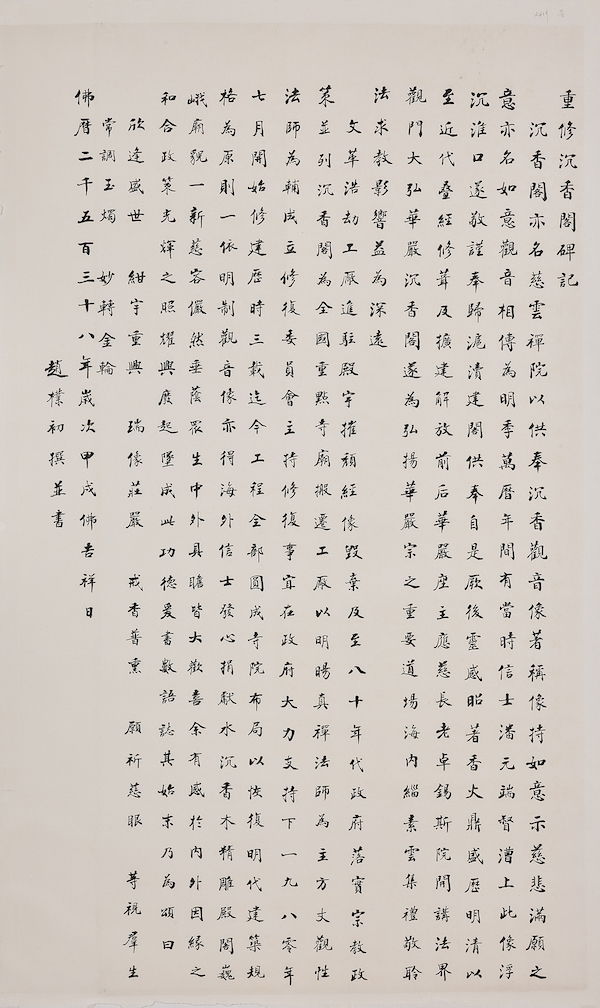 重修沉香閣碑記
沉香閣亦名慈雲禪院以供奉沉香觀音像著稱像持如意示慈悲滿願之
意亦名如意觀音相傳為明季萬曆年間有當時信士潘元端督漕上此像浮
沉淮口遂敬謹奉歸滬瀆建閣供奉自是厥後靈感昭著香火鼎盛歷明清以
至近代叠經修葺及擴建解放前后華嚴座主應慈長老卓錫斯院開講法界
觀門大弘華嚴沉香閣遂為弘揚華嚴宗之重要道場海內緇素雲集禮敬聆
法求教影響益為深遠
文革浩劫工厰進駐殿宇摧頹經像毀棄及至八十年代政府落實宗教政
策並列沉香閣為全國重點寺廟搬遷工厰以明暘真禪法師為主方丈觀性
法師為輔成立修復委員會主持修復事宜在政府大力支持下一九八零年
七月開始修建歷時三載迄今工程全部圓成寺院布局以恢復明代建築規
格為原則一依明制觀音像亦得海外信士發心捐献水沉香木精雕殿閣巍
峨廟貌一新慈容儼然垂蔭眾生中外具瞻皆大歡喜余有感於內外因緣之
和合政策光輝之照耀興廢起墜成此功德爰書數語誌其始末乃為頌曰
欣逢盛世 紺宇重興 瑞像莊嚴 戒香普熏 願祈慈眼 等視羣生
常調玉燭 妙轉金輪
佛曆二千五百三十八年歲次甲戌佛吉祥日
趙樸初撰並書